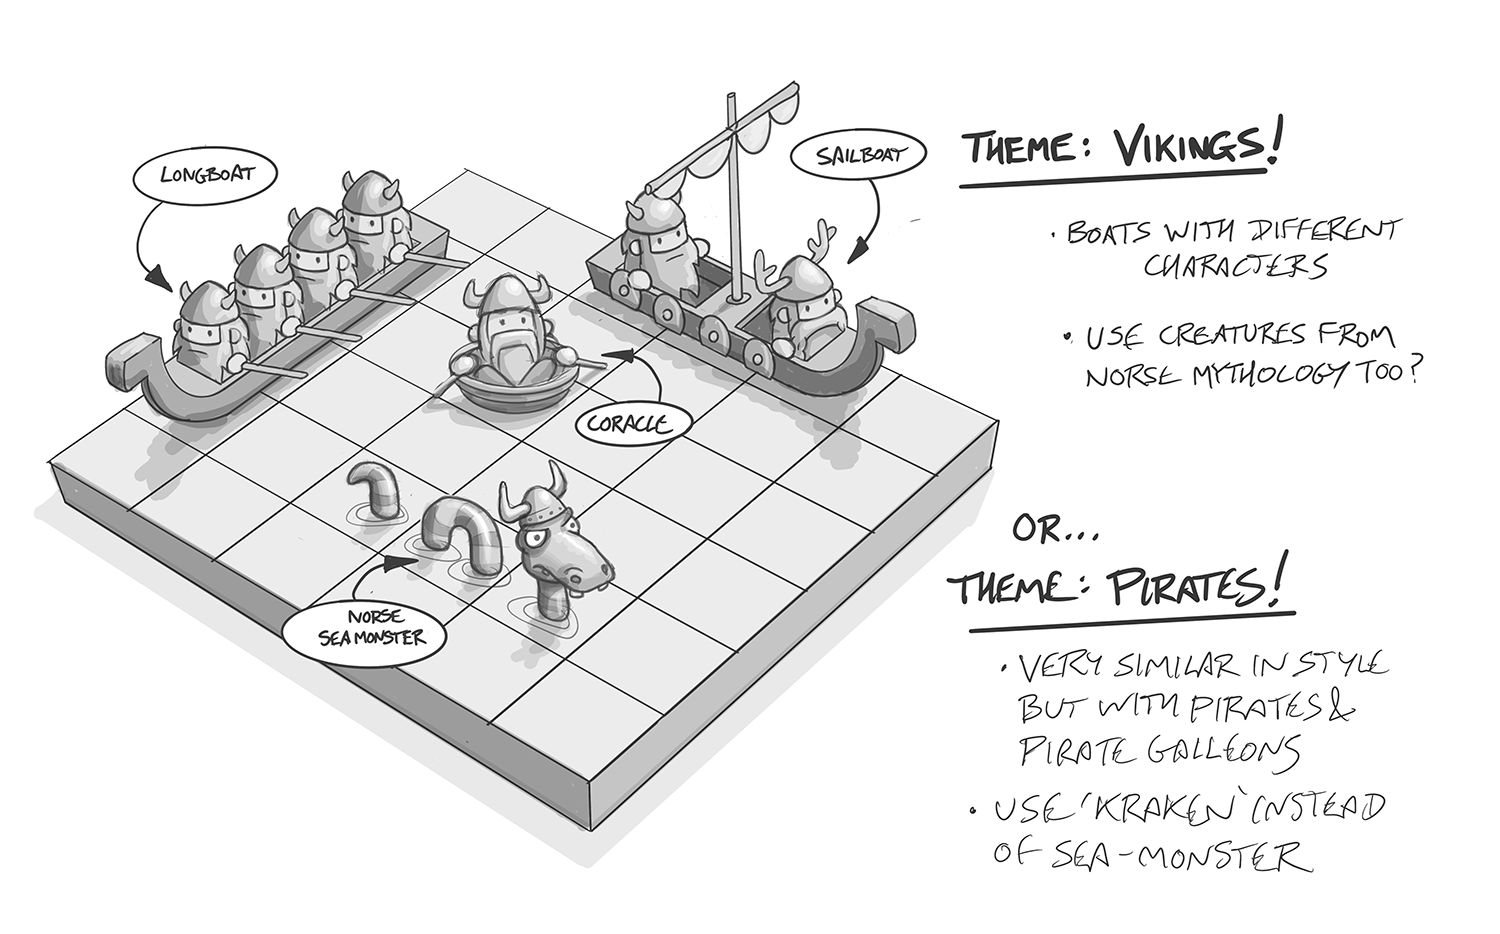 LONGBOAT
SAILBOAT
CORACLE
NORSE
SEA MONSTER
THEME: VIKINGS!
· BOATS WITH DIFFERENT
CHARACTERS
· USE CREATURES FROM
NORSE MYTHOLOGY TOO?
OR...
THEME: PIRATES!
· VERY SIMILAR IN STYLE
BUT WITH PIRATES &
PIRATE GALLEONS
· USE 'KRAKEN' INSTEAD
OF SEA-MONSTER